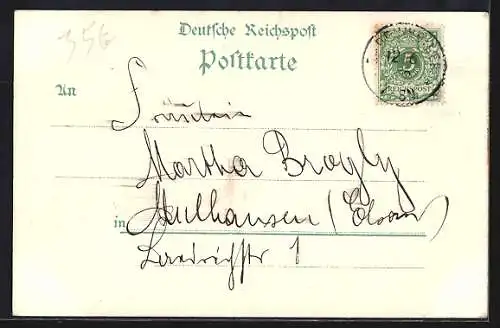 356
Deutsche Reichspost
Postkarte
An
Fräulein
Martha Brogly
in Mülhausen (Elsass)
1
REICHSPOST